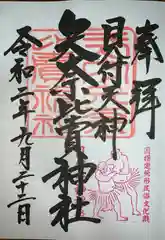 奉拝
国指定無形民俗文化財
見付天神
矢奈比賣神社
令和二年九月二十二日